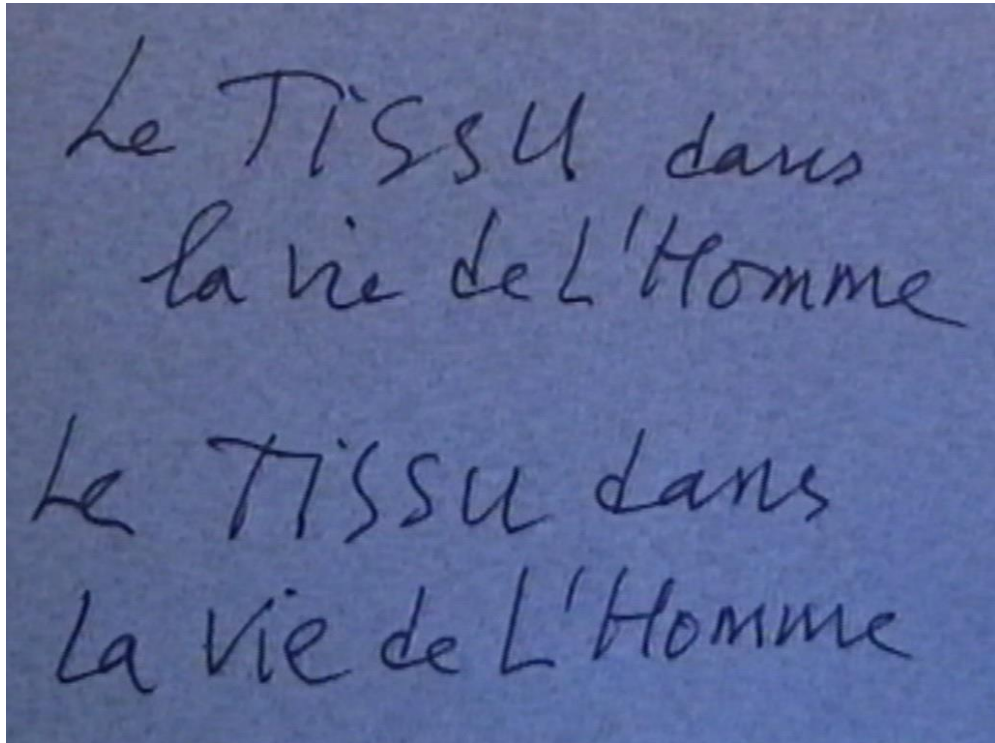 Le Tissu dans
la vie de L'Homme
Le Tissu dans
La Vie de L'Homme